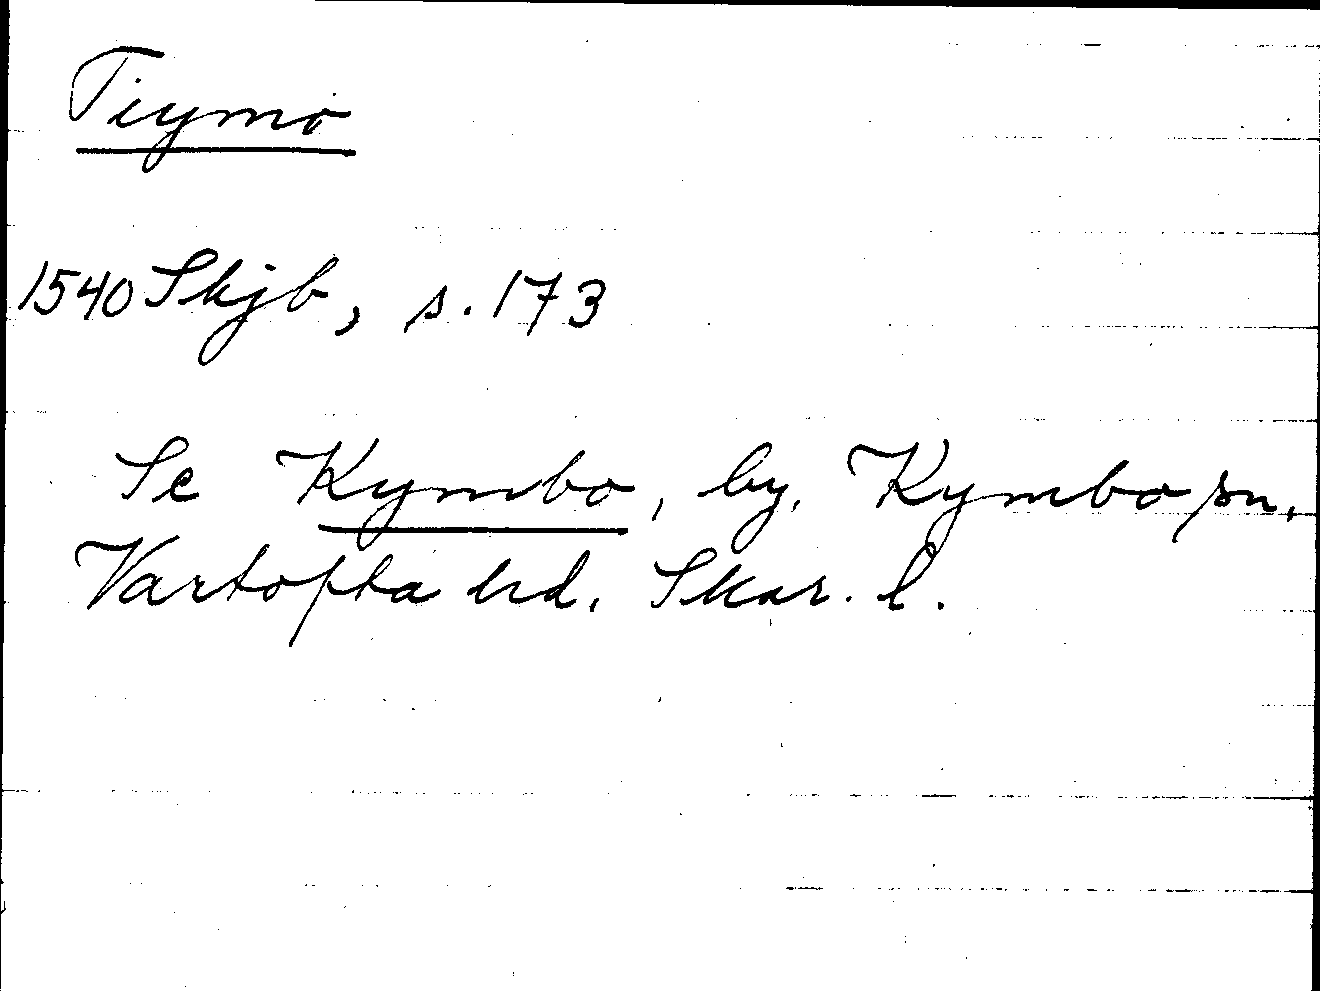 Tiymo
1540 Skjb, s. 173
Se Kymbo, by, Kymbo sn,
Vartofta hd. Skar. l.